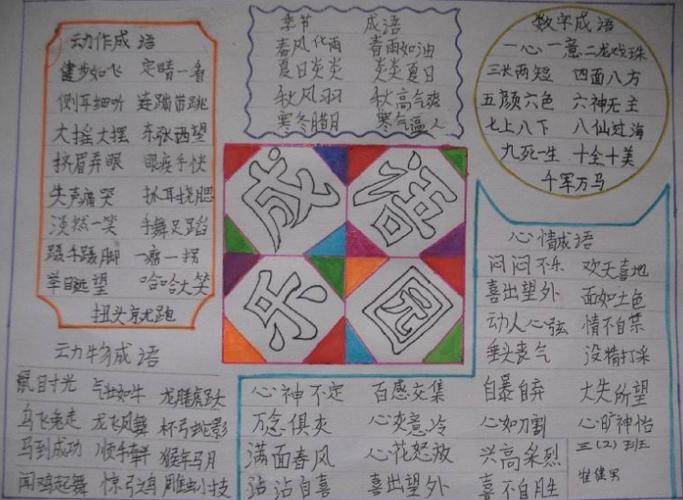 动作成语
健步如飞 定晴一看
侧耳细听 连蹦带跳
大摇大摆 东张西望
挤眉弄眼 眼疾手快
失声痛哭 抓耳挠腮
淡然一笑 手舞足蹈
蹑手蹑脚 一瘸一拐
举目远望 哈哈大笑
扭头就跑
季节 成语
春风化雨 春雨如油
夏日炎炎 炎炎夏日
秋风羽 秋高气爽
寒冬腊月 寒气逼人
数字成语
一心一意 二龙戏珠
三长两短 四面八方
五颜六色 六神无主
七上八下 八仙过海
九死一生 十全十美
千军万马
成语
乐园
动物成语
鼠目寸光 气壮如牛 龙腾虎跃
乌飞兔走 龙飞凤舞 杯弓蛇影
马到成功 顺手牵羊 猴年马月
闻鸡起舞 惊弓之鸟 雕虫小技
心情成语
闷闷不乐 欢天喜地
喜出望外 面如土色
动人心弦 情不自禁
垂头丧气 没精打采
心神不定 百感交集 自暴自弃 大失所望
万念俱灰 心灰意冷 心如刀割 心旷神怡
满面春风 心花怒放 兴高采烈
沾沾自喜 喜出望外 喜不自胜
三(2)班